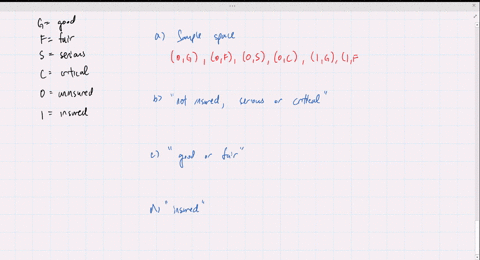 G = good
F = fair
S = serious
C = critical
0 = uninsured
1 = insured
a) Sample space
(0,G), (0,F), (0,S), (0,C), (1,G), (1,F
b) "not insured, serious or critical"
c) "good or fair"
"insured"